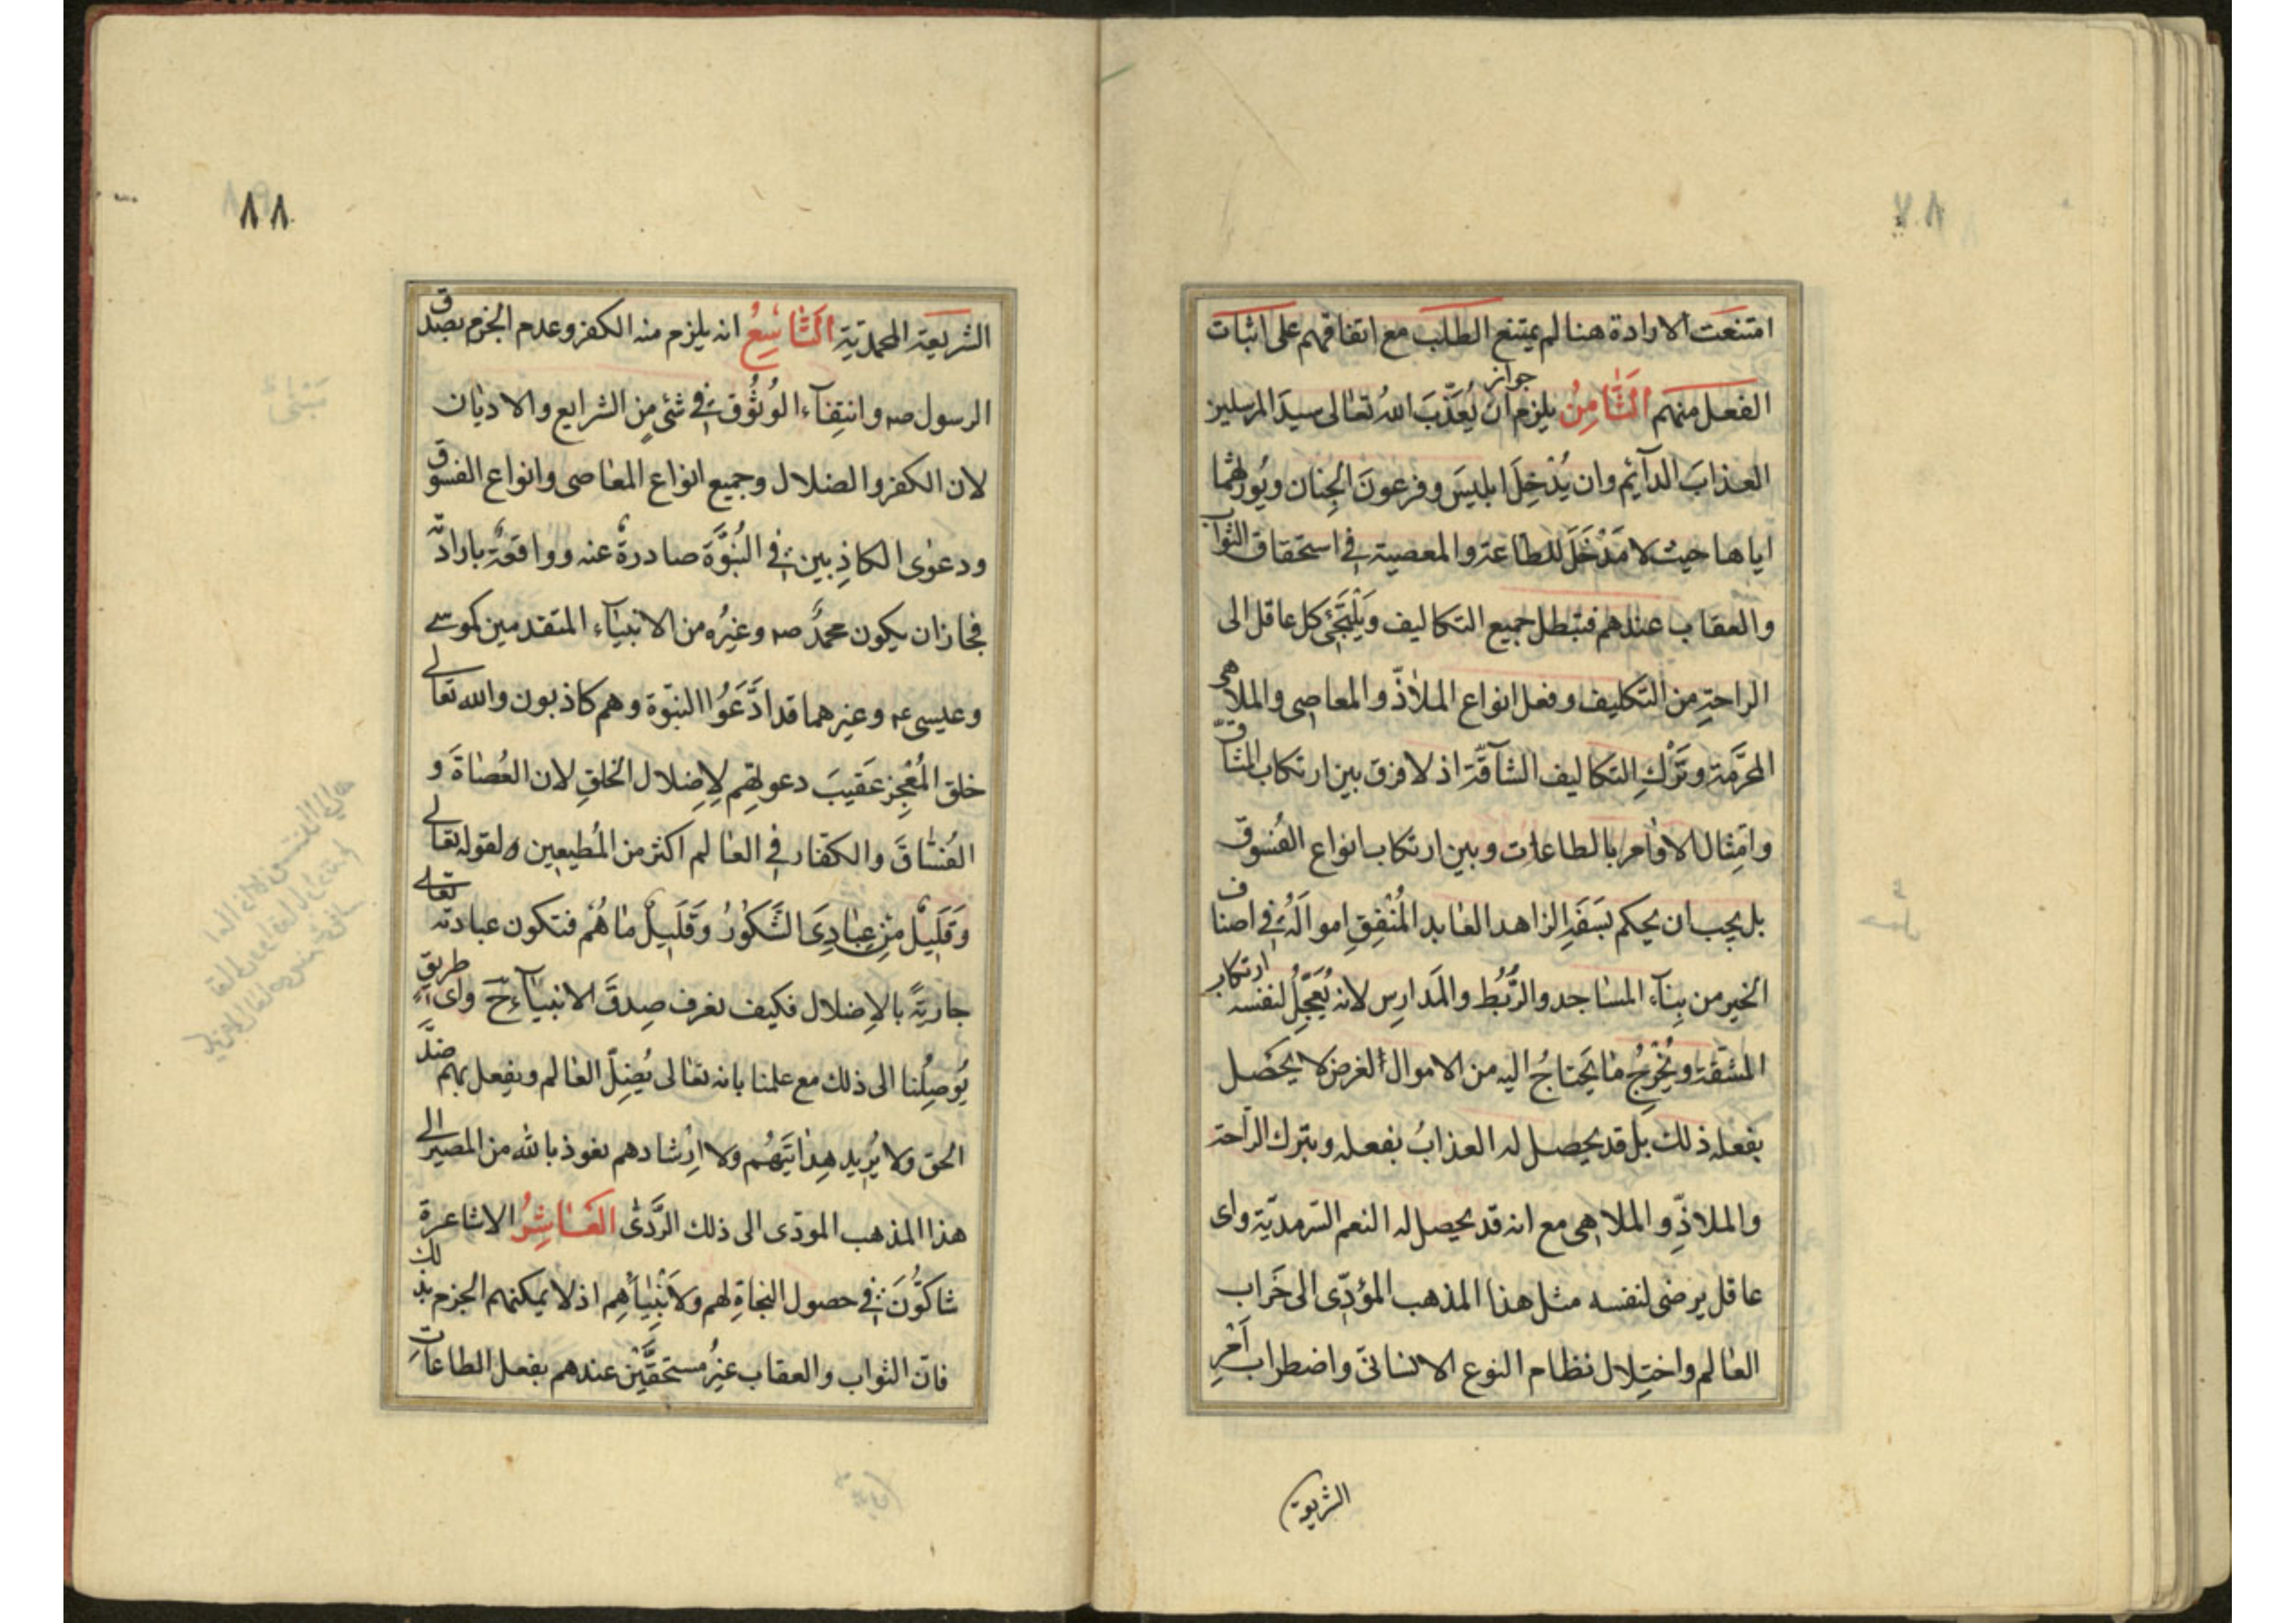 ٨٧
امتنعت الارادة هنا لم يمتنع الطلب مع اتفاقهم على اثبات
الفعل منهم الثَّامِنُ يلزم جواز ان يُعَذِّبَ اللهُ تعالى سيدَ المرسلين
العذابَ الدآئم وان يُدْخِلَ ابليسَ وفرعونَ الجِنان ويُورثهما
اياها حيث لا مَدْخَلَ للطاعة والمعصية في استحقاق الثواب
والعقاب عندهم فتبطل جميع التكاليف ويَلْتَجِئ كل عاقل الى
الراحةِ من التكليف وفعل انواع الملاذّ والمعاصى والملاهى
المحرَّمة وتَرْكِ التكاليف الشآقّة اذ لا فرق بين ارتكاب المشاقّ
وامتثال الاوامر بالطاعات وبين ارتكاب انواع الفُسوق
بل يجب ان يحكم بسَفَهِ الزاهد العابد المُنْفِقِ اموالَهُ في اصناف
الخير من بِنآء المساجد والرُّبُط والمَدارِس لانه يُعَجِّلُ لنفسه ارتكاب
المشقة ويُخْرِجُ ما يَحتاجُ اليه من الاموال الغرض لا يحصل
بفعله ذلك بل قد يحصل له العذابُ بفعله وبترك الراحة
والملاذِّ والملاهى مع انه قد يحصل له النعم السَّرمديّة واى
عاقل يرضى لنفسه مثل هذا المذهب المؤدّى الى خَراب
العالم واختِلال نظام النوع الانسانىّ واضطراب اَمْرِ
الشريعة
٨٨
الشريعة المحمدية التَّاسِعُ انه يلزم منه الكفر وعدم الجزم بصدق
الرسول صـ وانتِفآءِ الوُثُوق في شئى مِن الشرايع والاديان
لان الكفر والضلال وجميع انواع المعاصى وانواع الفسوق
ودعوى الكاذِبين في النُبُوَّة صادرةٌ عنه وواقعةٌ بارادته
فجاز ان يكون محمدٌ صـ وغيرُه من الانبيآء المتقدمين كموسى
وعيسى عـ وغيرهما قد ادَّعَوُا النبّوة وهم كاذبون والله تعالى
خلق المُعْجِز عَقيبَ دعوتهم لِإضلال الخلقِ لان العُصاةَ و
الفُسّاقَ والكفار في العالم اكثر من المُطيعين لقوله تعالى
وَقَلِيلٌ مِنْ عِبادِىَ الشَّكُورُ وَقَلِيلٌ ما هُمْ فتكون عبادته تعالى
جاريَةً بالإضلال فكيف نعرف صِدقَ الانبيآءِ ح واى طريقٍ
يُوصِلُنا الى ذلك مع علمنا بانه تعالى يُضِلّ العالم ويفعل بهم ضدَّ
الحق ولا يُرِيد هِدايَتَهُم ولا اِرْشادهم نعوذ بالله من المصير الى
هذا المذهب المودّى الى ذلك الرَّدىّ العَاشِرُ الاشاعرة
شاكُّونَ في حصول النجاةِ لهم ولاَنْبِيائهم اذ لا يمكنهم الجزم بذلك
فانّ الثواب والعقاب غيرُ مستحقَّيْن عندهم بفعل الطاعاتِ